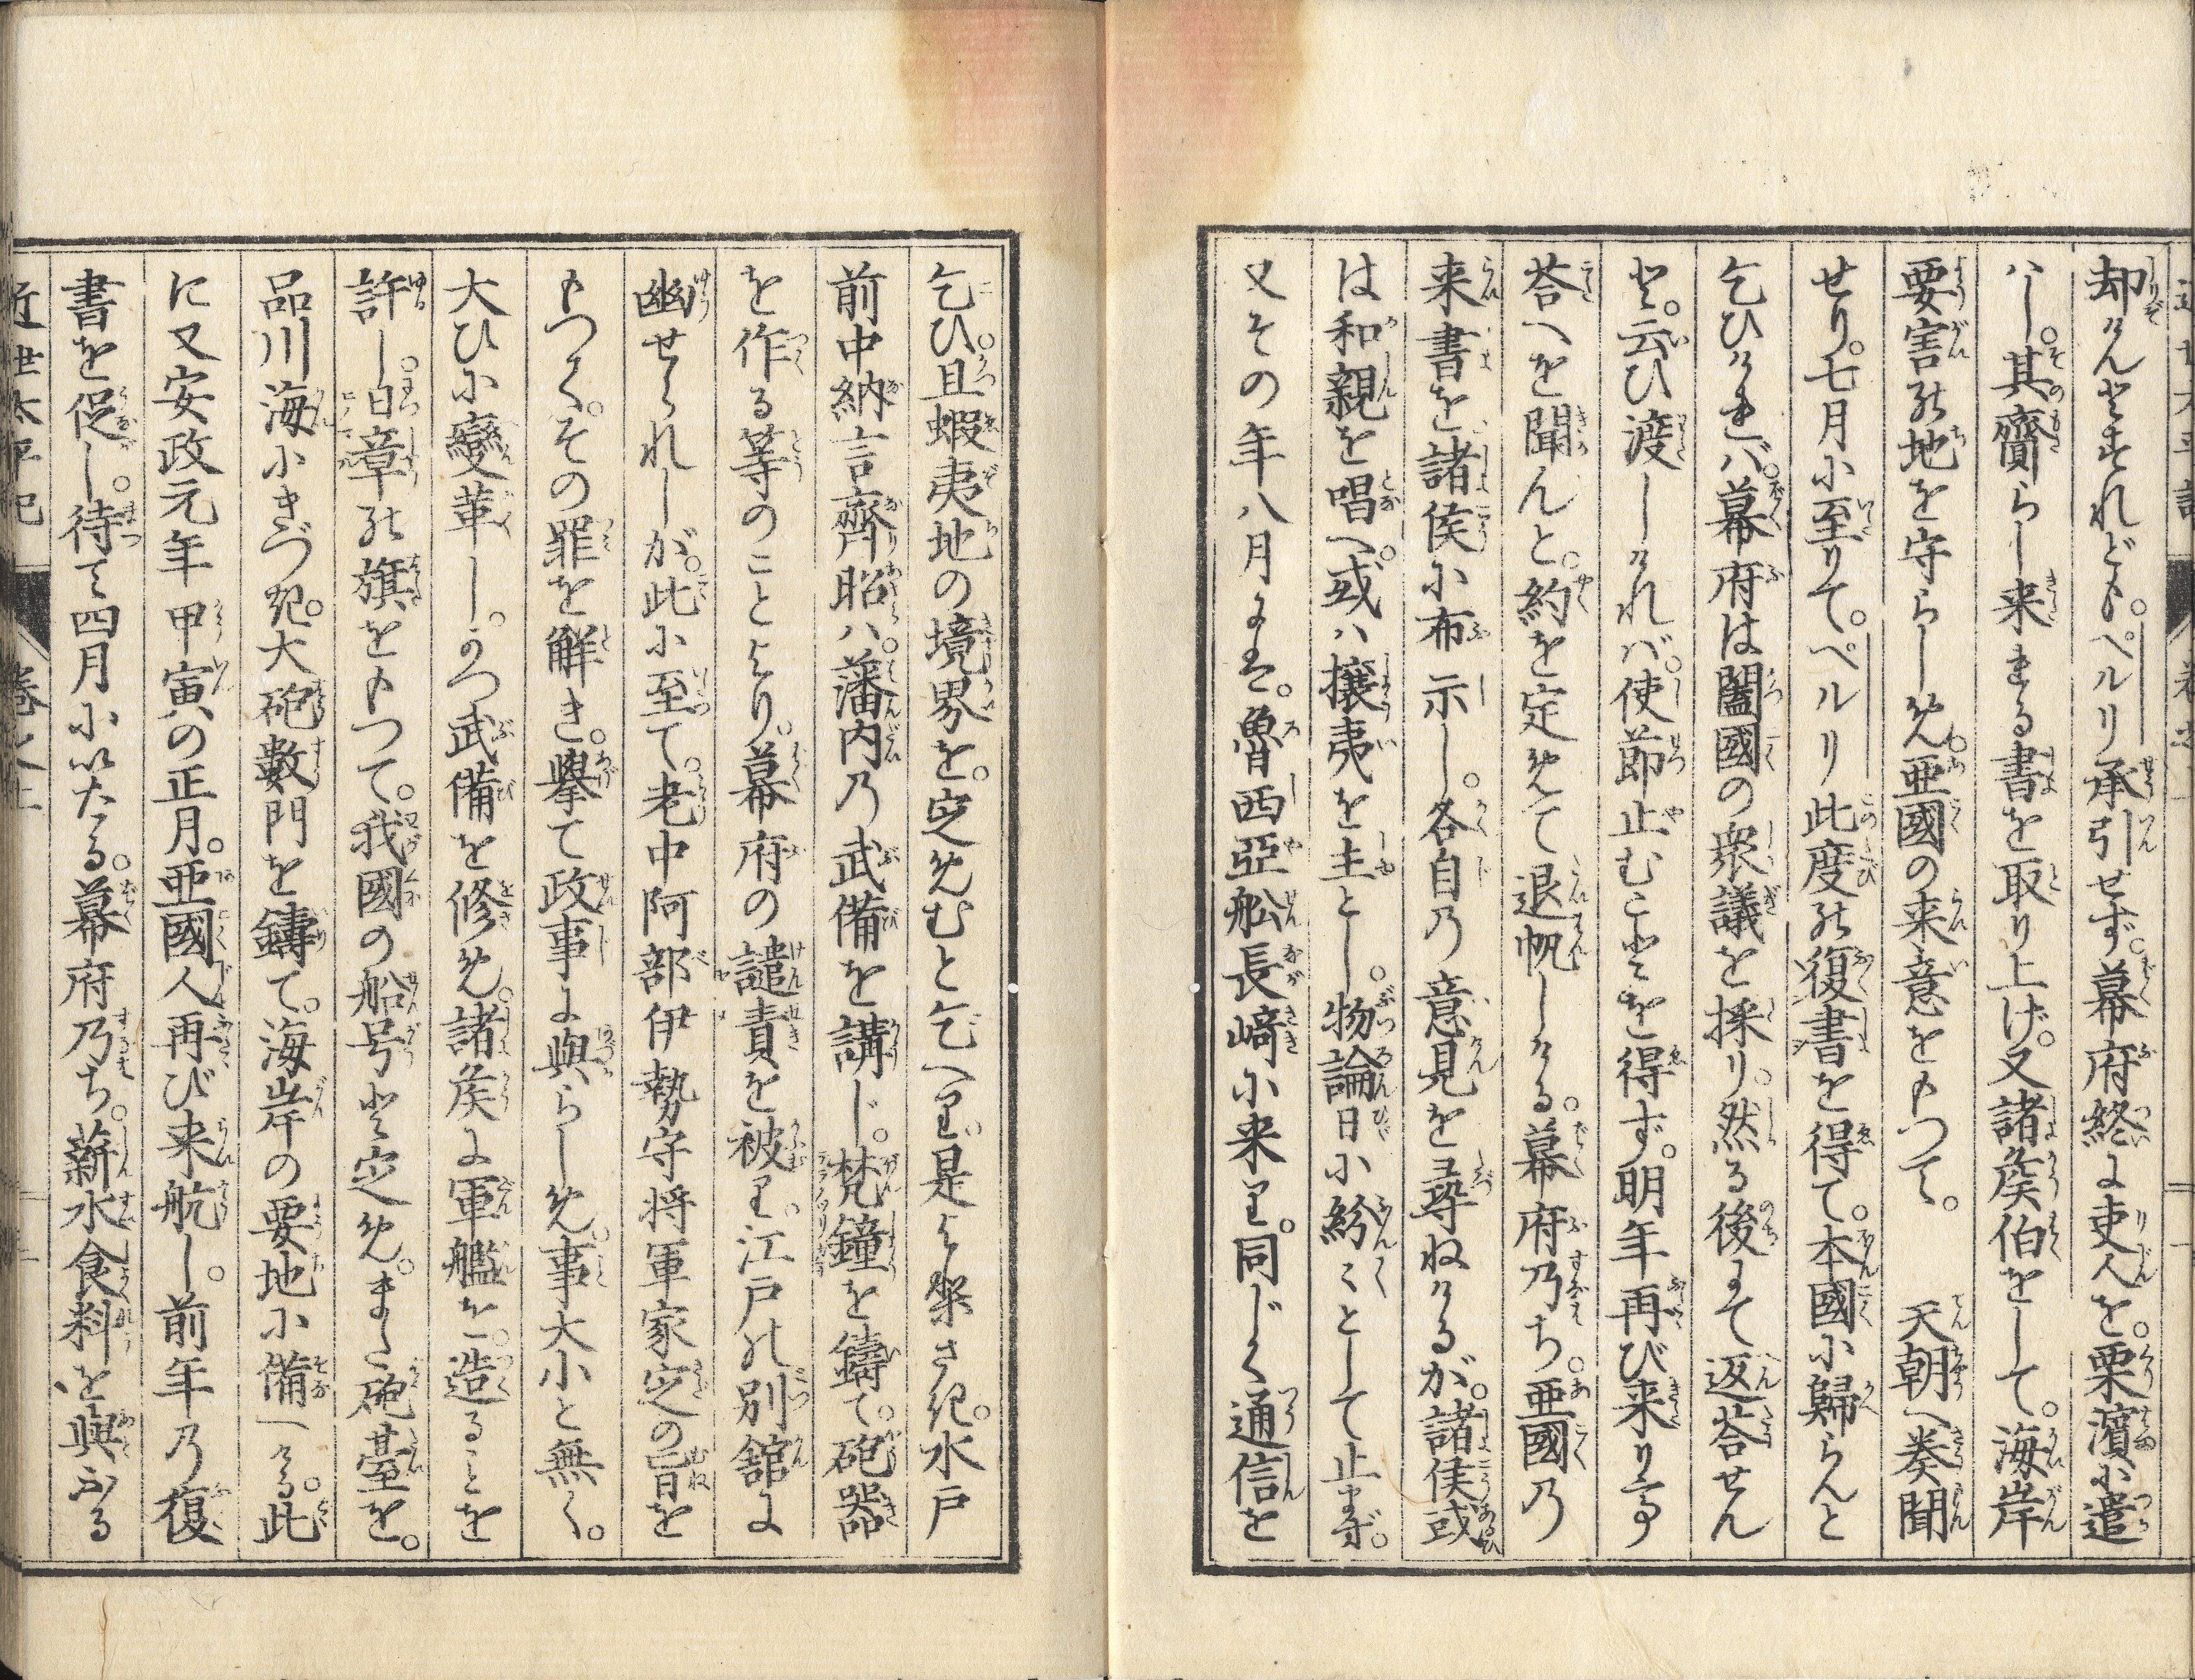 却けんとすれどもペルリ承引せず。幕府終に吏人を。栗濱に遣
はし。其齎らし来まる書を取り上げ。又諸矦伯をして。海岸
要害の地を守らしめ。亜國の来意をもつて。　天朝へ奏聞
せり。七月に至りて。ペルリ此度の復書を得て。本國に歸らんと
乞ひければ。幕府は闔國の衆議を採り。然る後にて返荅せん
と。云ひ渡しければ。使節止むことを得ず。明年再び来り
荅へを聞んと。約を定めて退帆しける。幕府乃ち。亜國乃
来書を諸侯に布示し。各自乃意見を尋ねけるが。諸侯或
は和親を唱へ。或ハ攘夷を主とし。物論日に紛〻として止まず。
又その年八月には。魯西亞舩長﨑に来り。同じく通信を
乞ひ。且蝦夷地の境界を。定めむと乞へり。是より先き。水戸
前中納言齊昭ハ。藩内乃武備を講じ。梵鐘を鑄て。砲器
を作る等のことより。幕府の譴責を被り。江戸の別舘に
幽せられしが。此に至て。老中阿部伊勢守将軍家定の旨を
もつて。その罪を觧き。擧て政事に與らしめ。事大小と無く。
大ひに變革し。かつ武備を修め。諸矦に軍艦を。造ることを
許し。日章の旗をもつて。我國の船号と定め。また砲臺を。
品川海にきづき。大砲數門を鑄て。海岸の要地に備へける。此
に又安政元年甲寅の正月。亜國人再び来航し。前年乃復
書を促し。待て四月にいたる。幕府乃ち。薪水食料を與ふる
近世太平記　巻之上